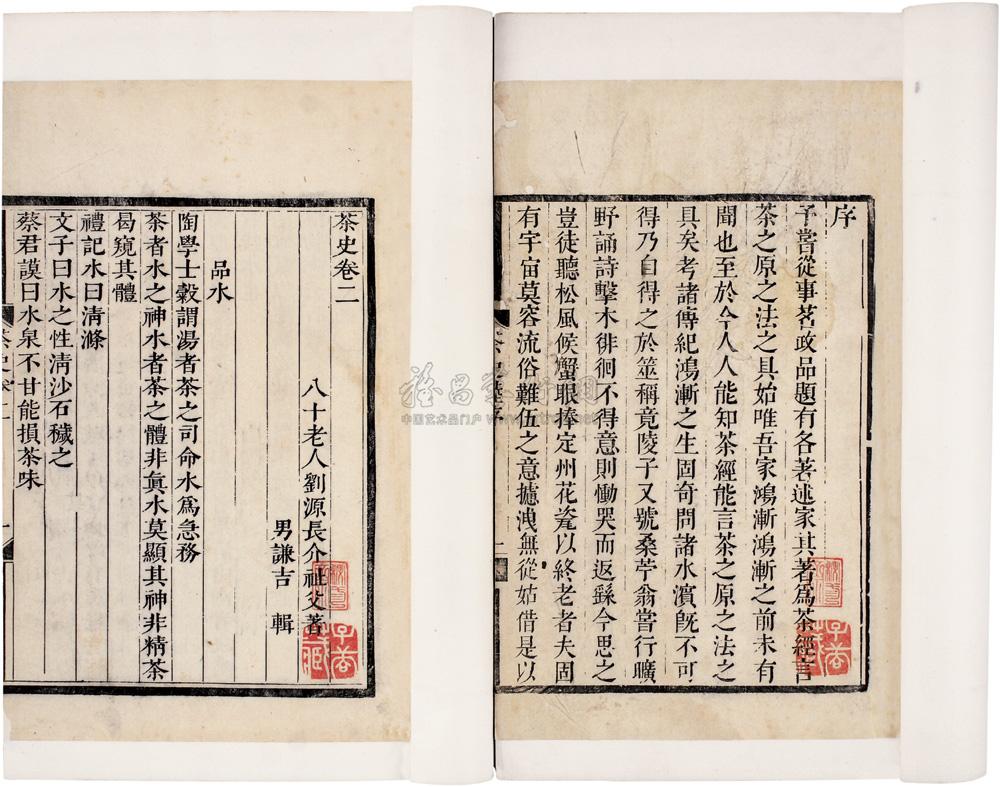 序
予嘗從事茗政品題有各著述家其著爲茶經言
茶之原之法之具始唯吾家鴻漸鴻漸之前未有
聞也至於今人人能知茶經能言茶之原之法之
具矣考諸傳紀鴻漸之生固奇問諸水濱旣不可
得乃自得之於筮稱竟陵子又號桑苧翁嘗行曠
野誦詩擊木徘徊不得意則慟哭而返繇今思之
豈徒聽松風候蟹眼捧定州花瓷以終老者夫固
有宇宙莫容流俗難伍之意攄洩無從姑借是以
茶史卷二
八十老人劉源長介祉父著
男謙吉 輯
品水
陶學士穀謂湯者茶之司命水爲急務
茶者水之神水者茶之體非眞水莫顯其神非精茶
曷窺其體
禮記水曰清滌
文子曰水之性淸沙石穢之
蔡君謨曰水泉不甘能損茶味
茶史卷二
中国艺术品门户